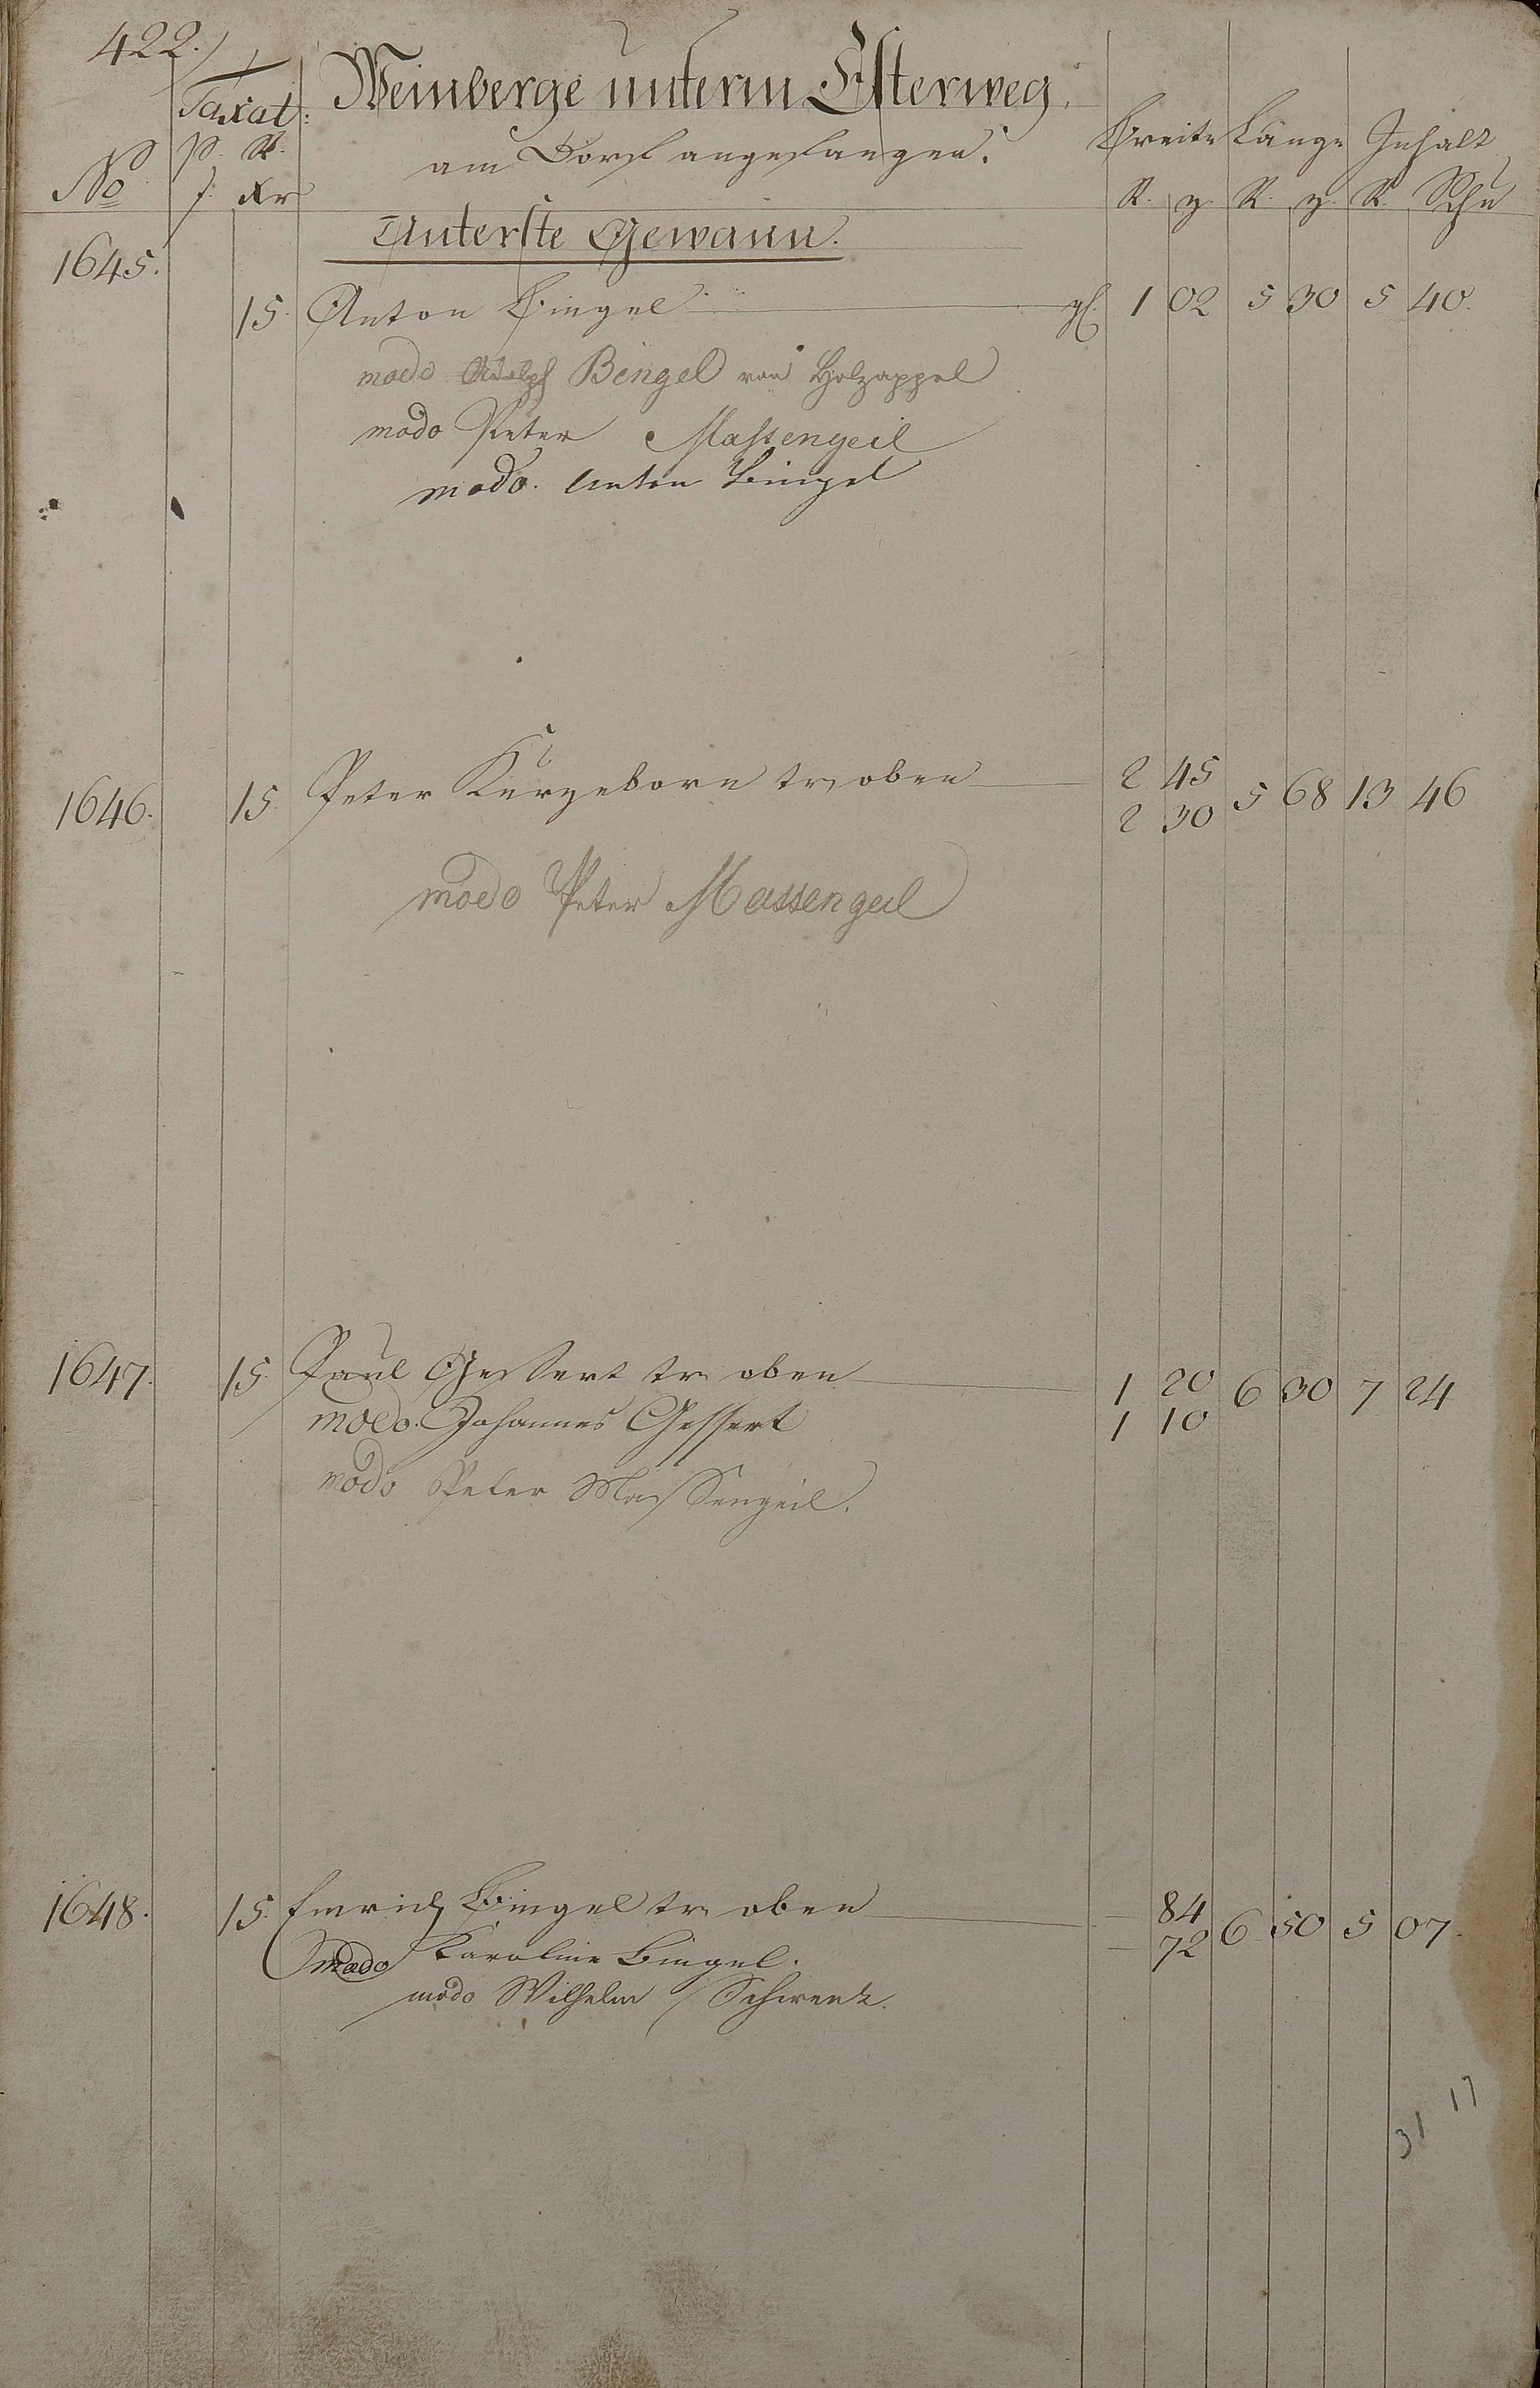 422.
Taxat: Weinberge unterm Esterweg.
p. R. am Dorf angefangen. Breite Länge Inhalt
No f. Xr R. z. R. z. R. Schu
Unterste Gewann.
1645. 15. Anton Bingel gl. 1 02 5 30 5 40.
modo Adolph Bingel von Holzappel
modo Peter Massengeil
modo. Anton Bingel
1646. 15. Peter Kurzeborn tr. oben 2 45 5 68 13 46
2 30
modo Peter Massengeil
1647. 15. Paul Gessert tr. oben 1 20 6 30 7 24
modo. Johannes Gessert 1 10
modo Peter Massengeil.
1648. 15. Emrich Bingel tr. oben — 84 6 50 5 07.
modo Karoline Bingel. — 72
modo Wilhelm Schwenk.
31 17